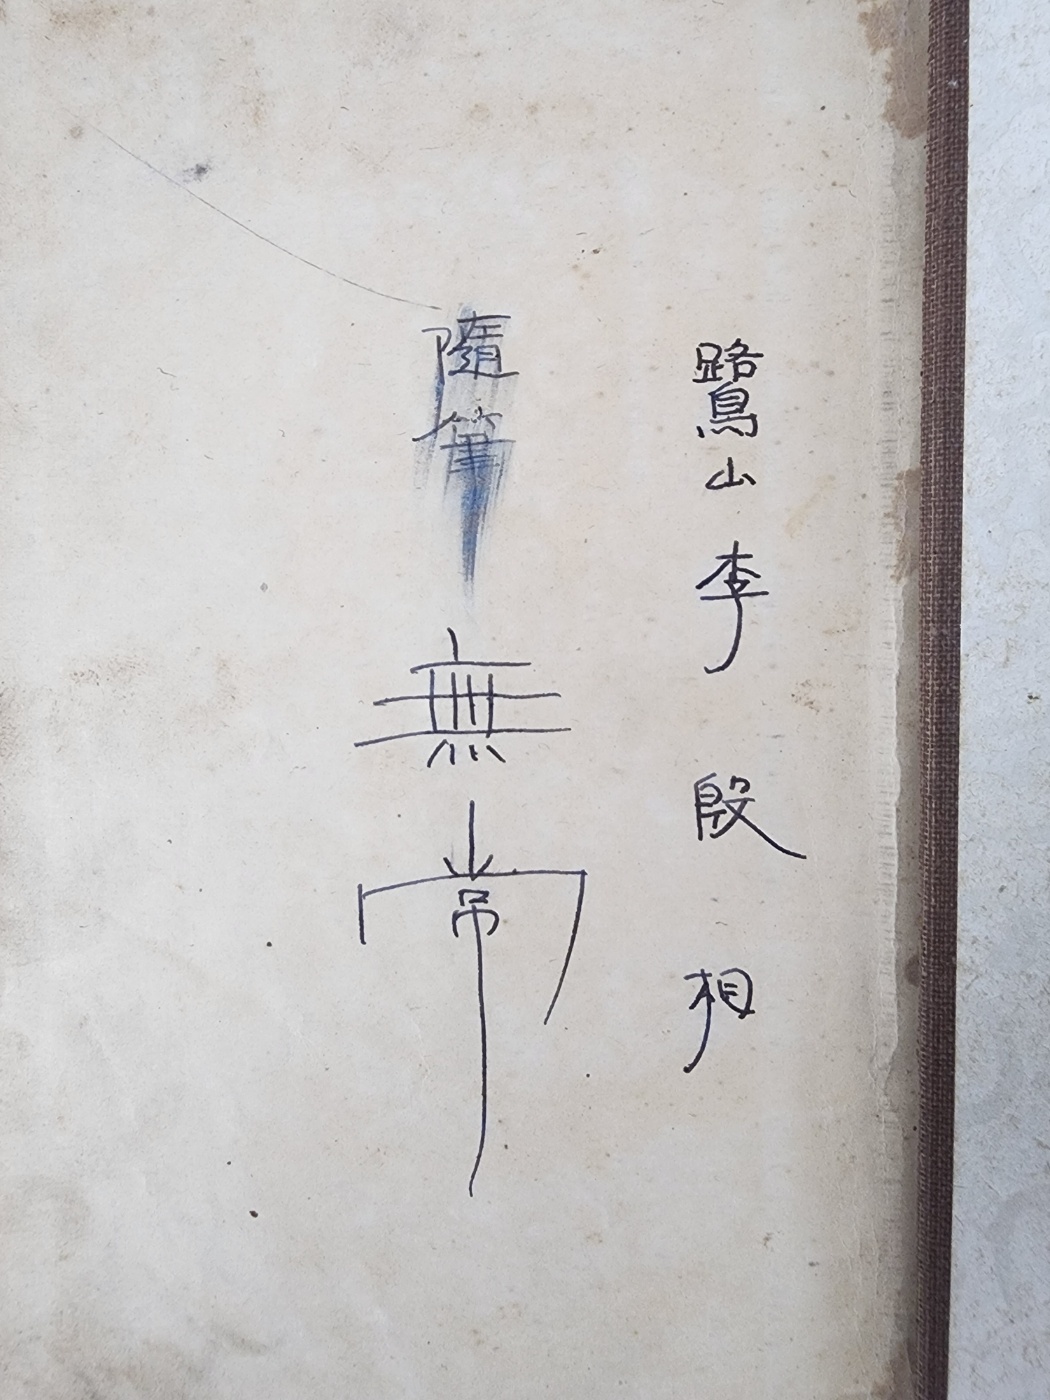 鷺山 李殷相
隨筆 無常